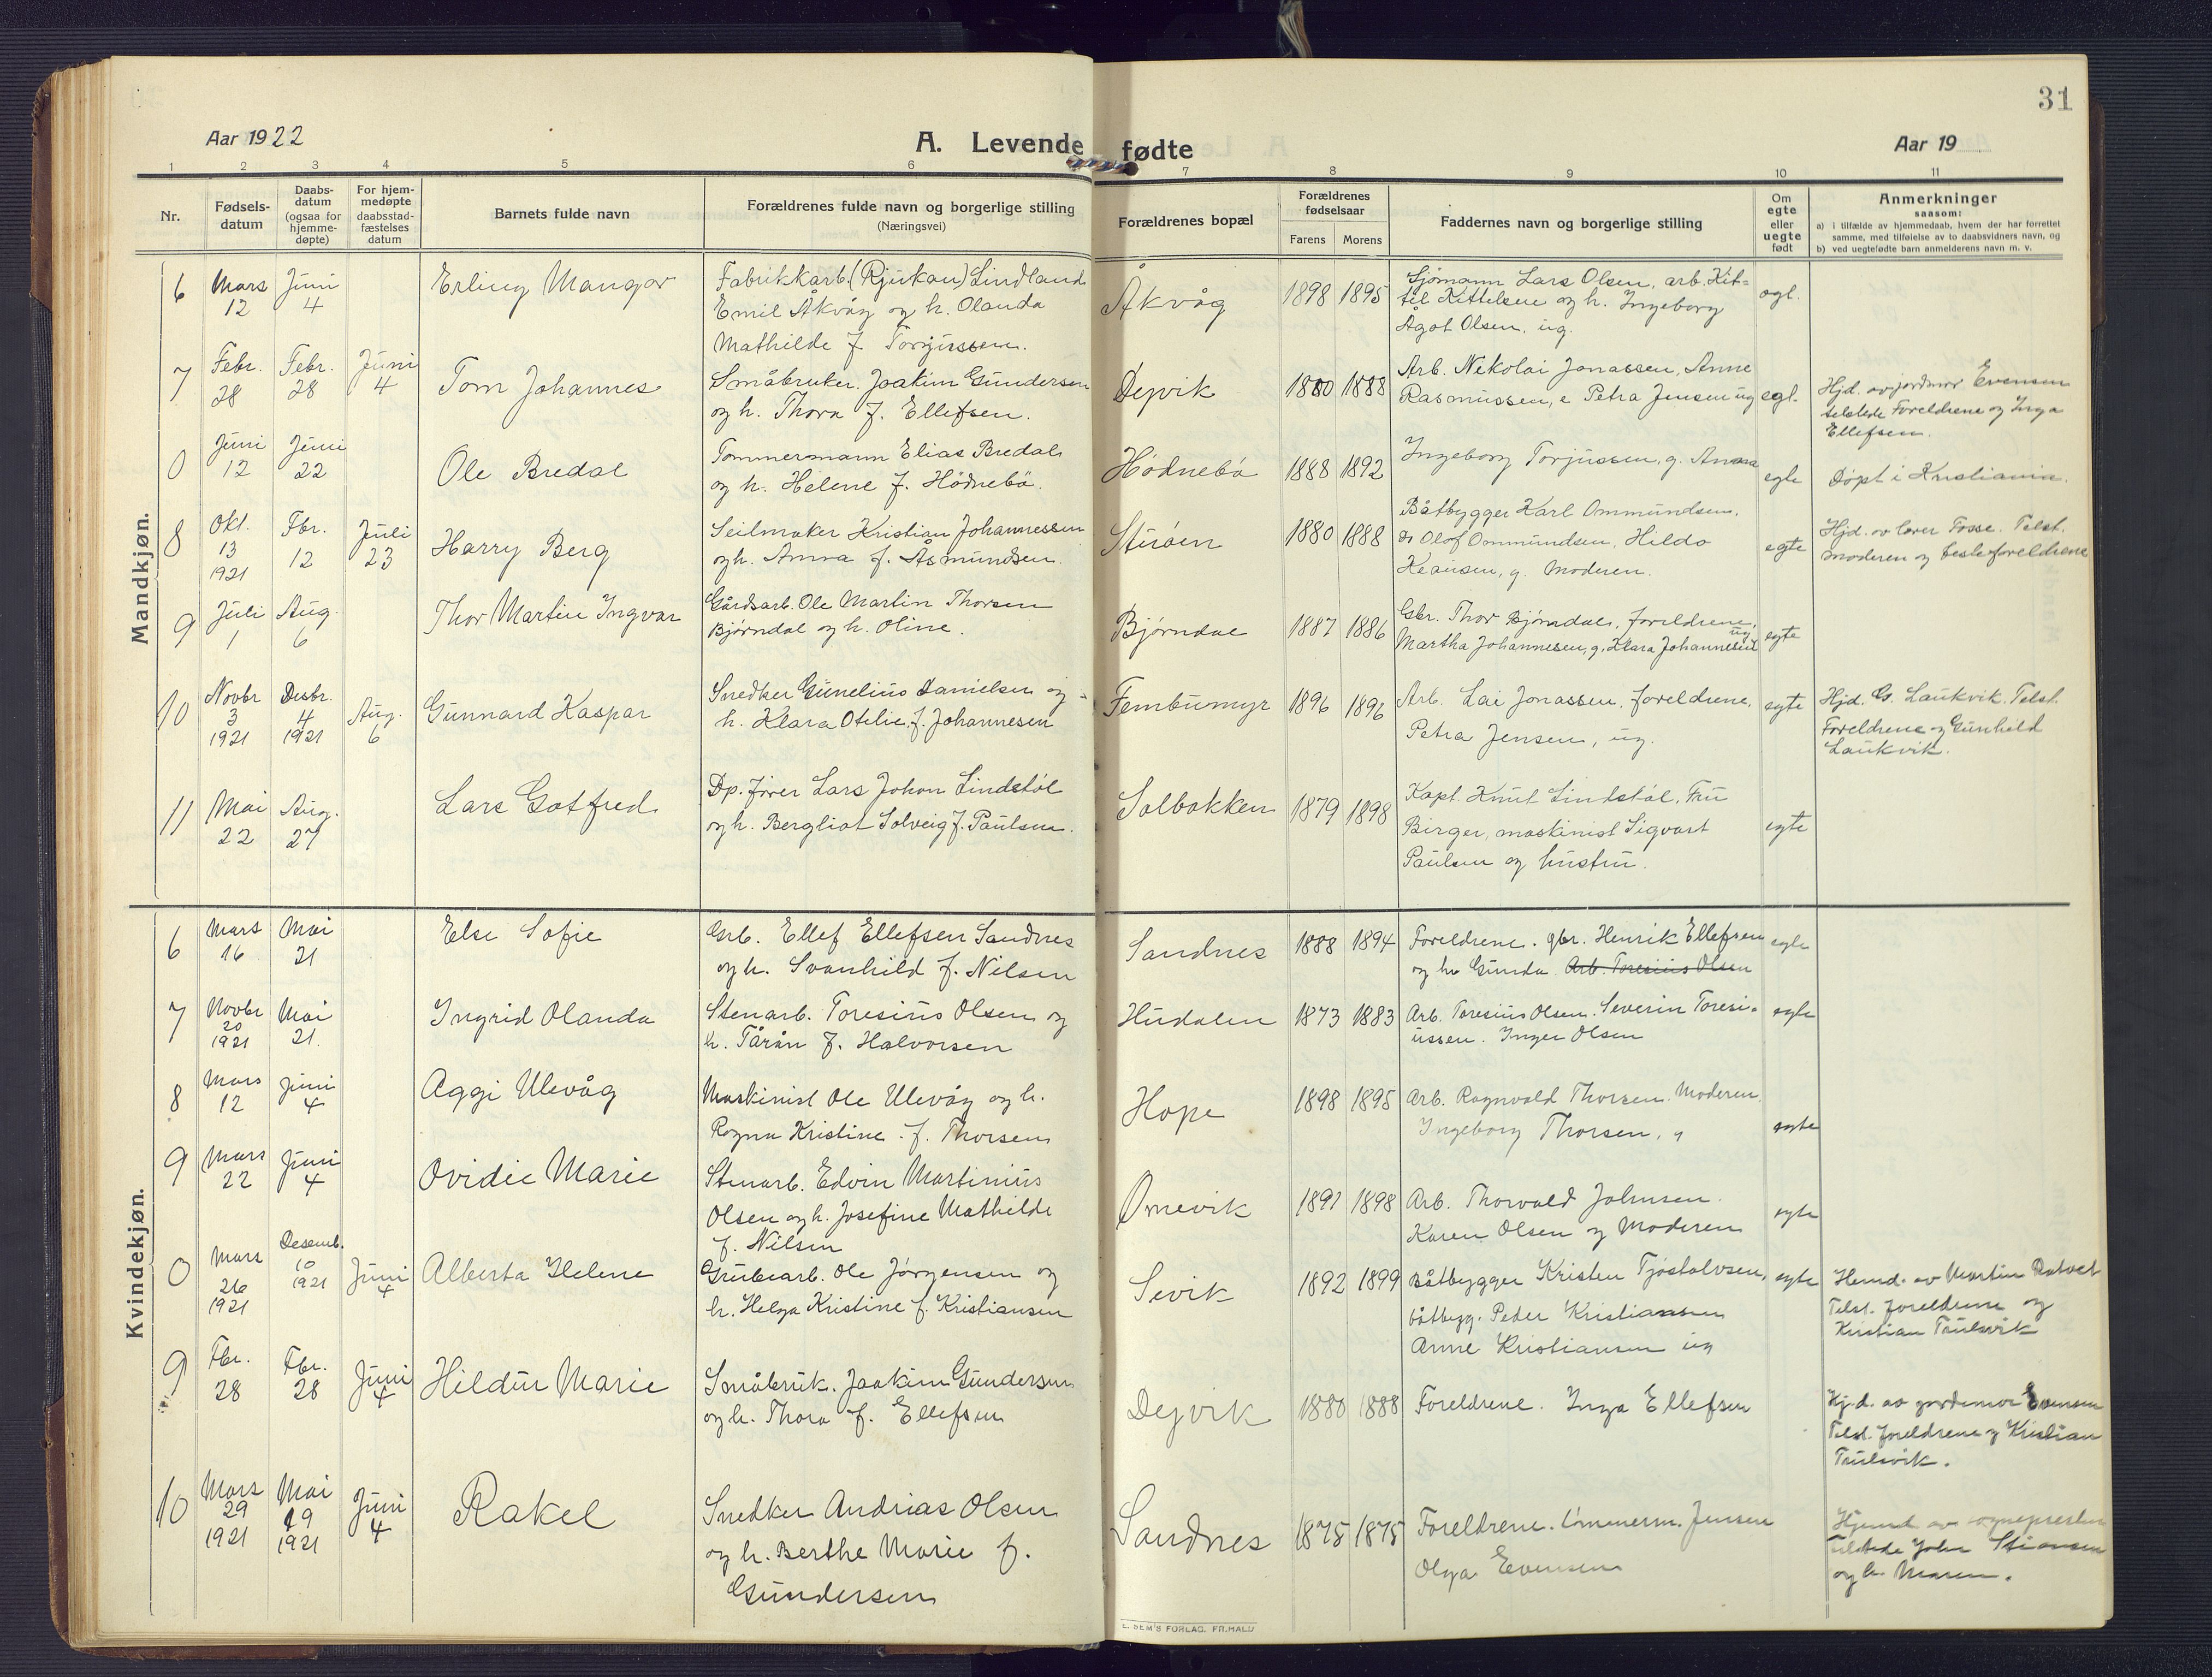 31
Aar 1922
A. Levende fødte
Aar 19
1 2 3 4 5 6 7 8 9 10 11
Nr.
Fødsels-
datum
Daabs-
datum
(ogsaa for
hjemme-
døpte)
For hjem-
medøpte
daabsstad-
fæstelses
datum
Barnets fulde navn
Forældrenes fulde navn og borgerlige stilling
(Næringsvei)
Forældrenes bopæl
Forældrenes
fødselsaar
Farens
Morens
Faddernes navn og borgerlige stilling
Om
egte
eller
uegte
født
Anmerkninger
saasom:
a) i tilfælde av hjemmedaab, hvem der har forrettet
samme, med tilføielse av to daabsvidners navn, og
b) ved uegtefødte barn anmelderens navn m. v.
Mandkjøn.
6
Mars
12
Juni
4
Erling Mangor
Fabrikkarb. (Rjukan) Lindland
Emil Åkvåg og h. Olanda
Mathilde f. Torjussen.
Åkvåg
1898 1895
Sjömann Lars Olsen, arb. Kit=
til Kittelsen og h. Ingeborg
Ågot Olsen, ug.
7
Febr.
28
Febr.
28
Juni
4
Tom Johannes
Småbruker. Joakim Gundersen
og h. Thora f. Ellefsen.
Dejvik
1880 1888
Arb. Nikolai Jonassen, Anne
Rasmussen, e Petra Jensen ug
egt.
Hjd. av jordmor Evensen
telstede Foreldrene og Inga
Ellefsen.
0
Juni
12
Juni
22
Ole Bredal
Tommermann Elias Bredal
og h. Helene f. Hödnebö.
Hödnebö
1888 1892
Ingeborg Torjussen, g. Anna
egte
Döpt i Kristiania.
8
Okt.
13
1921
Fbr.
12
Juli
23
Harry Berg
Seilmaker Kristian Johannessen
og h. Anna f. Åsmundsen.
Stuöen
1880 1888
Båtbygger Karl Ommundsen,
Olof Ommundsen, Hilda
g. Moderen.
egte
Hjd. av lærer Fosse. Telst.
moderen og besteforeldrene
9
Juli
1
Aug.
6
Thor Martin Ingvar
Gårdsarb. Ole Martin Thorsen
Bjørndal og h. Oline.
Bjørndal
1887 1886
Gbr. Thor Bjørndal, foreldrene,
Martha Johannesen, g. Klara Johannesen ug
egte
10
Novbr
3
1921
Desbr.
4
1921
Aug.
6
Gunnard Kaspar
Snedker Gunelius Danielsen og
h. Klara Otilie f. Johannesen
Fembumyr
1896 1896
Arb. Lai Jonassen, foreldrene,
Petra Jensen, ug.
egte
Hjd. G. Laukvik. Telst.
Foreldrene og Gunhild
Laukvik.
11
Mai
22
Aug.
27
Lars Gotfred
Dp. fører Lars Johan Lindstöl
og h. Bergliot Solveig f. Paulsen.
Solbakken
1879 1898
Kapt. Knut Lindstöl, Fru
Birger, maskinist Sigvart
Paulsen og hustru.
egte
Kvindekjøn.
6
Mars
16
Mai
21
Else Sofie
Arb. Ellef Ellefsen Sandnes
og h. Svanhild f. Nilsen
Sandnes
1888 1894
Foreldrene. gbr. Henrik Ellefsen
og h. Gunda. Arb. Toresius Olsen
egte
7
Novbr
20
1921
Mai
21.
Ingrid Olanda
Stenarb. Toresius Olsen og
h. Tårån f. Halvorsen
Hudalen
1873 1883
Arb. Toresius Olsen. Severin Toresi-
ussen. Inger Olsen
egte
8
Mars
12
Juni
4
Aggi Ulevåg
Maskinist Ole Ulevåg og h.
Ragna Kristine f. Thorsen
Hope
1898 1895
Arb. Ragnvald Thorsen. Moderen.
Ingeborg Thorsen, g
egte
9
Mars
22
Juni
4
Ovidie Marie
Stenarb. Edvin Martinius
Olsen og h. Josefine Mathilde
f. Nilsen
Ørnevik
1891 1898
Arb. Thorvald Johnsen.
Karen Olsen og Moderen
egte
0
Mars
26
1921
Desemb.
10
1921
Juni
4
Alberta Helene
Grubearb. Ole Jörgensen og
h. Helga Kristine f. Kristiansen
Sevik
1892 1899
Båtbygger Kristen Tjöstolvsen,
båtbygg. Peder Kristiansen
Anne Kristiansen ug
egte
Hemd. av Martin
Telst. foreldrene og
Kristian Trulsvik
9
Fbr.
28
Fbr.
28
Juni
4
Hildur Marie
Småbruk. Joakim Gundersen
og h. Thora f. Ellefsen
Dejvik
1880 1888
Foreldrene. Inga Ellefsen
Hj.d. av jordemor Evensen
Telst. foreldrene og Kristian
Trulsvik.
10
Mars
29
1921
Mai
19
1921
Juni
4
Rakel
Snedker Andrias Olsen
og h. Berthe Marie f.
Gundersen
Sandnes
1875 1875
Foreldrene. tömmerm. Jensen
Olga Evensen
Hjemd. av sognepresten
tilstede John Stiansen
og h. Maren.
E. SEM'S FORLAG. FR.HALD